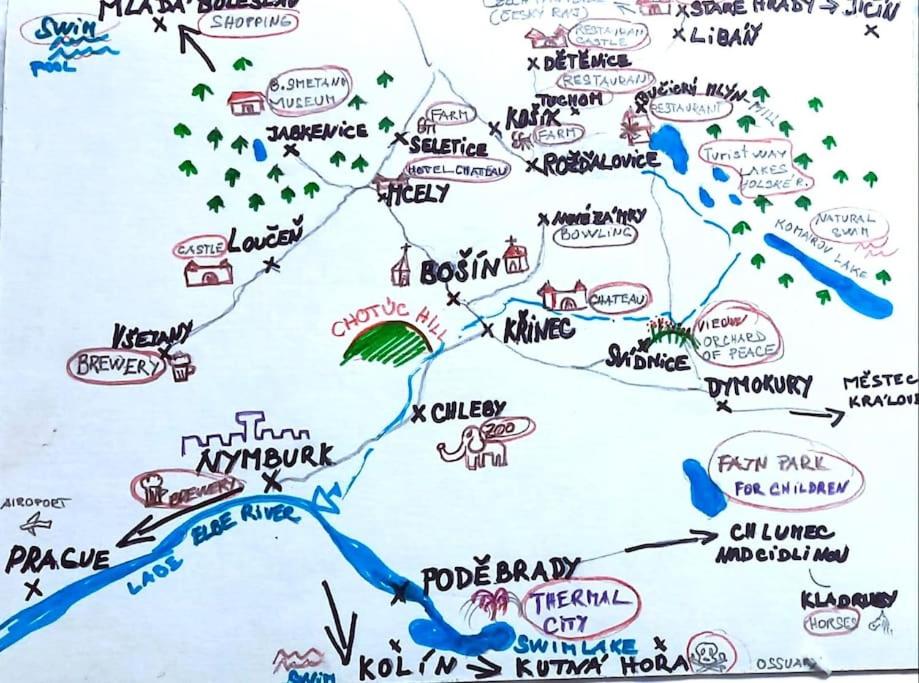 MLADÁ BOLESLAV
SHOPPING
SWIM
POOL
(ČESKÝ RAJ)
STARÉ HRADY → JIČÍN
LIBÁŇ
RESTAURAN
CASTLE
DĚTĚNICE
RESTAURANT
TUCHOM
B. SMETANO
MUSEUM
JABKENICE
FARM
SELETICE
KOŠÍK
FARM
RESTAURANT
ROŽĎALOVICE
HOTEL CHATEAU
MCELY
TURIST WAY
LAKES
CASTLE
LOUČEŇ
NOVÉ ZÁMKY
BOWLING
NATURAL
SWIM
KOMAROV LAKE
BOŠÍN
CHATEAU
CHOTUC HILL
KŘINEC
VIEW
ORCHARD
OF PEACE
SVÍDNICE
VŠEJANY
BREWERY
DYMOKURY
MĚSTEC
KRÁLOV
CHLEBY
ZOO
NYMBURK
BREWERY
FAJN PARK
FOR CHILDREN
AIROPORT
PRAGUE
LABE ELBE RIVER
CHLUMEC
NAD CIDLINOU
PODĚBRADY
THERMAL
CITY
KLADRUBY
HORSES
SWIM LAKE
SWIM
KOLÍN → KUTNÁ HORA
OSSUAR